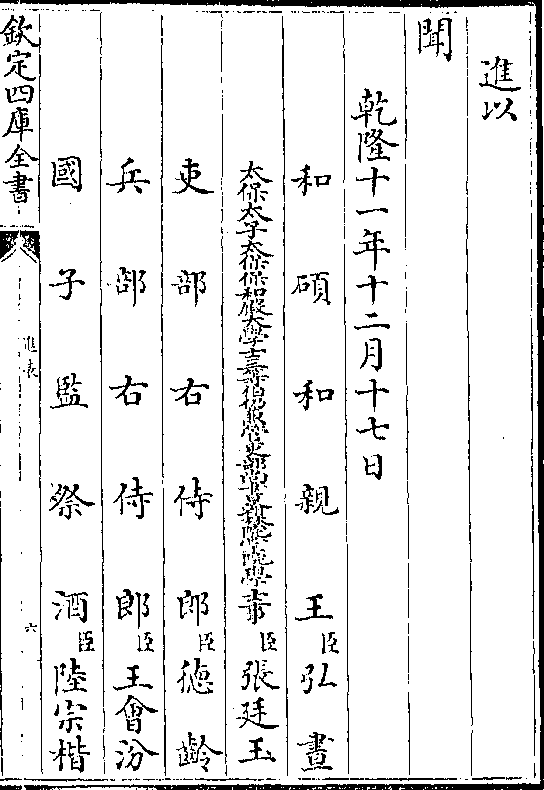 進以
聞
乾隆十一年十二月十七日
和碩和親王臣弘晝
太保太子太保保和殿大學士三等伯兼管吏部尚書翰林院學士事臣張廷玉
吏部右侍郎臣德齡
兵部右侍郎臣王會汾
國子監祭酒臣陸宗楷
欽定四庫全書
進表
六